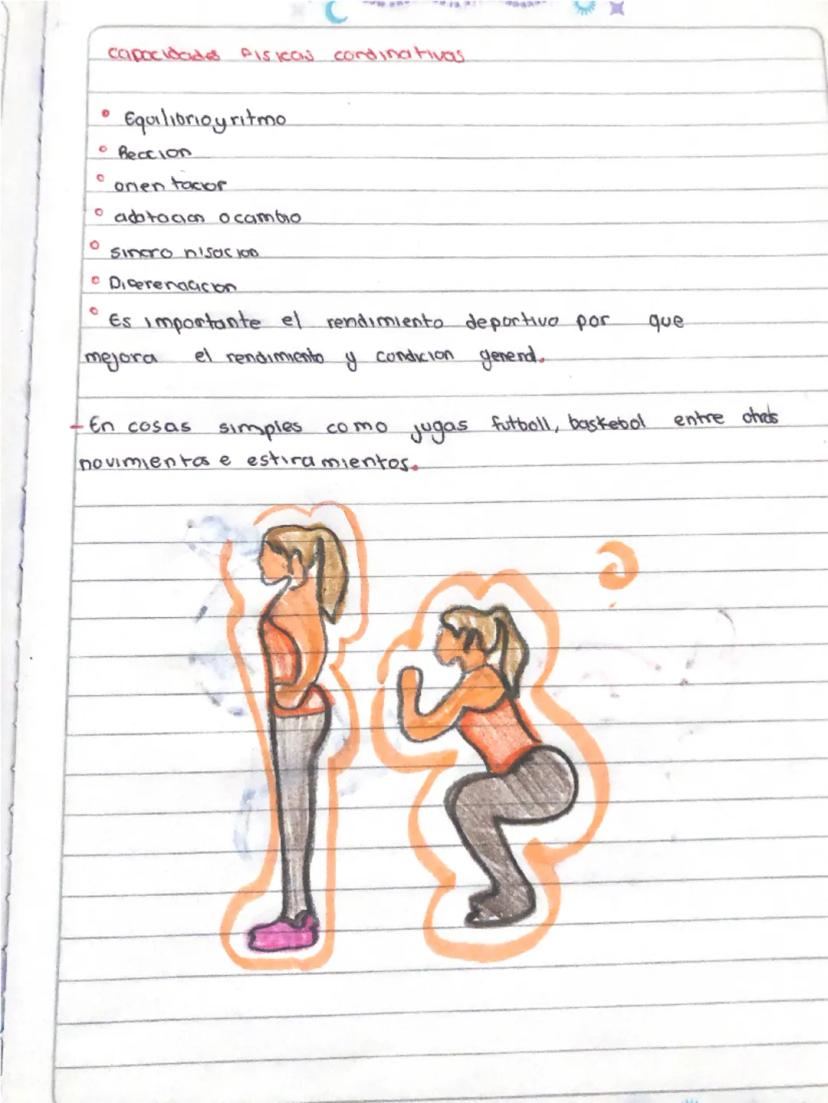 capacidades Fisicas cordinativas
Equilibrio y ritmo
Reccion
orientacior
adotacion o cambio
sincro nisacion
Diferenciacion
Es importante el rendimiento deportivo por que
mejora el rendimiento y condicion general.
- En cosas simples como jugas futboll, basketbol entre otros
movimientos e estiramientos.